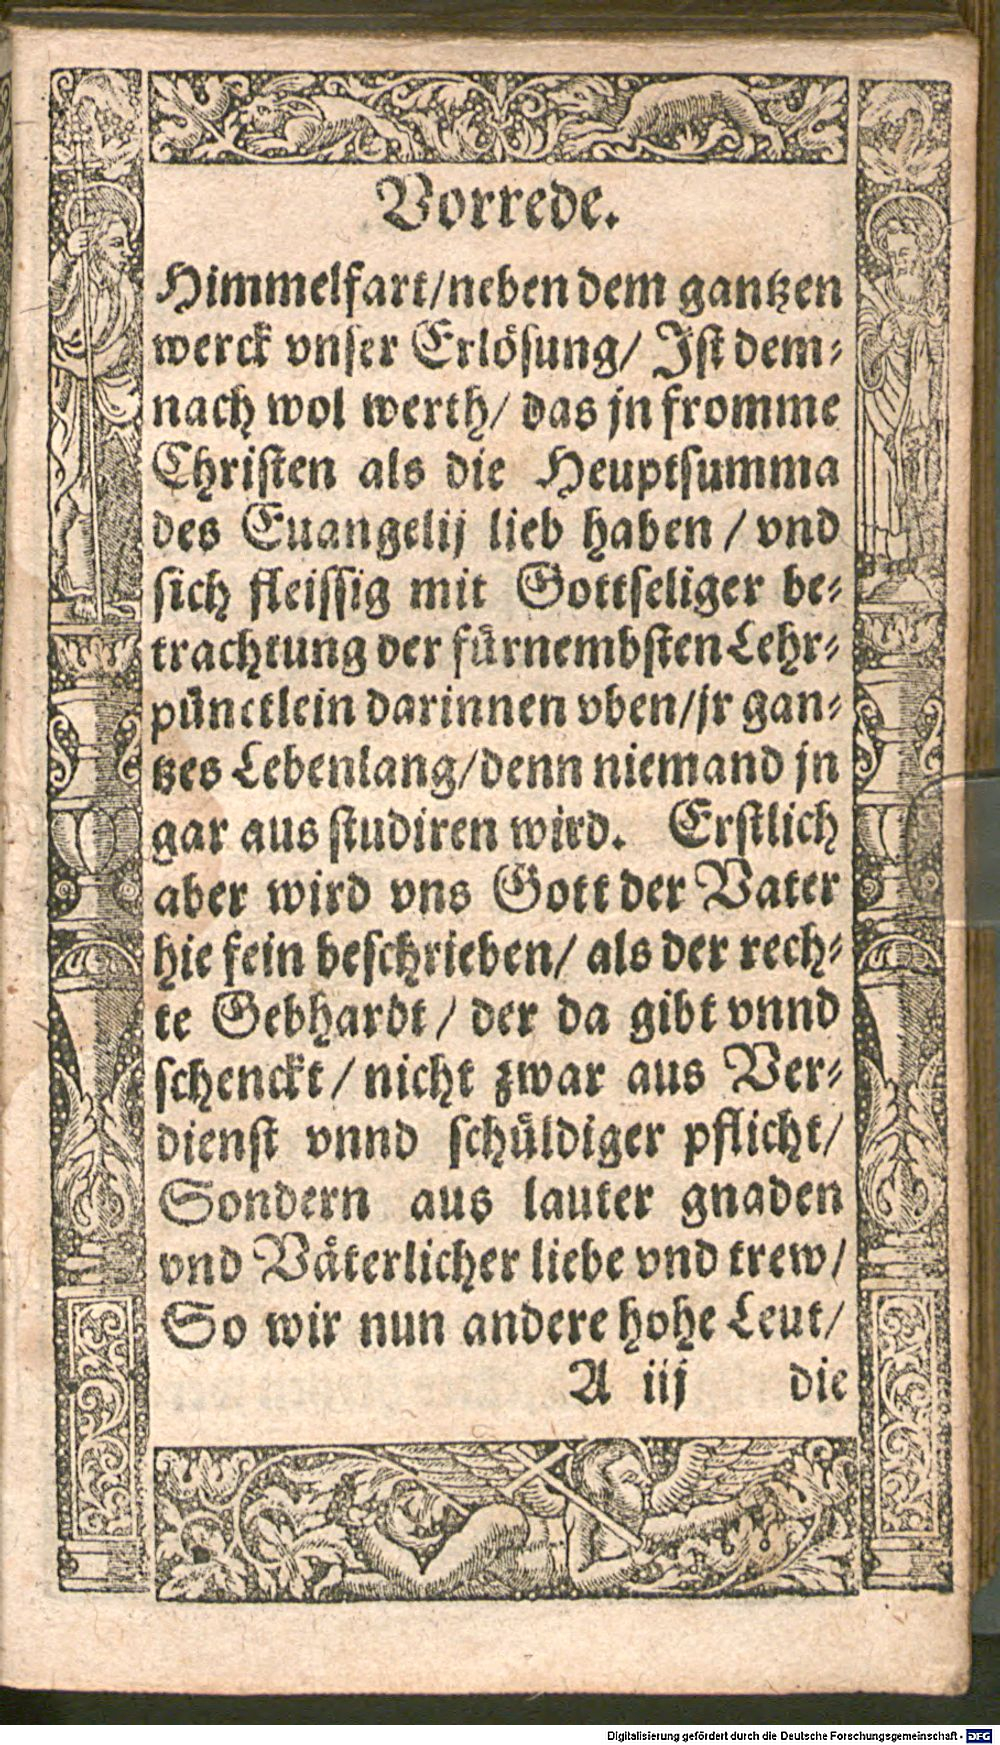 Vorrede.
Himmelfart/neben dem gantzen
werck vnser Erlösung/ Ist dem⸗
nach wol werth/ das jn fromme
Christen als die Heuptsumma
des Euangelij lieb haben / vnd
sich fleissig mit Gottseliger be⸗
trachtung der fürnembsten Lehr⸗
pünctlein darinnen vben/jr gan⸗
tzes Lebenlang/denn niemand jn
gar aus studiren wird. Erstlich
aber wird vns Gott der Vater
hie fein beschrieben/ als der rech⸗
te Gebhardt / der da gibt vnnd
schenckt / nicht zwar aus Ver⸗
dienst vnnd schüldiger pflicht/
Sondern aus lauter gnaden
vnd Väterlicher liebe vnd trew/
So wir nun andere hohe Leut/
A iij die
Digitalisierung gefördert durch die Deutsche Forschungsgemeinschaft - DFG